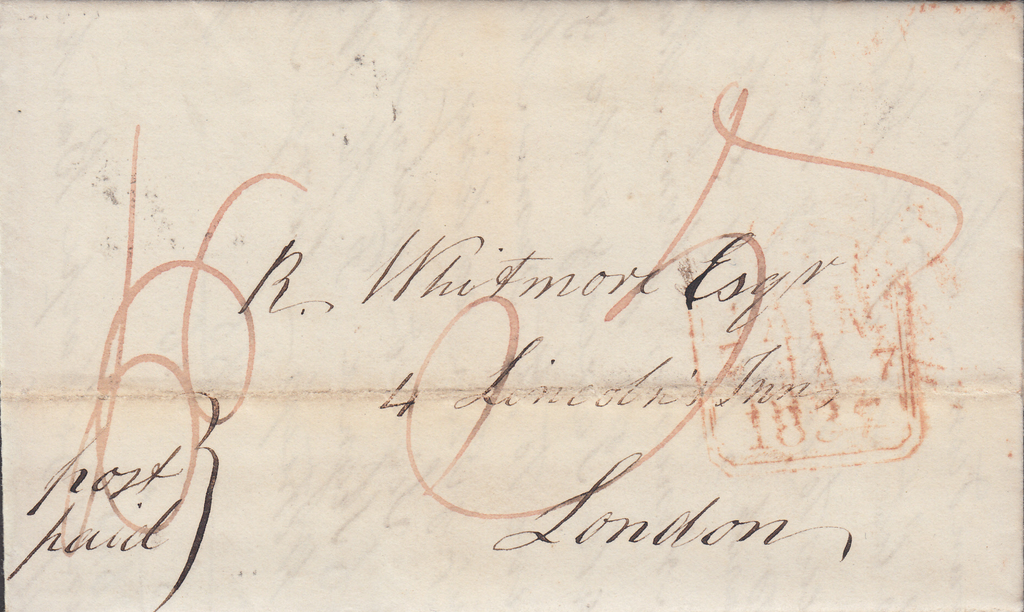 R. Whitmore Esqr
4 Lincoln's Inn,
London,
post
paid
PAID
7 JA 7
1837